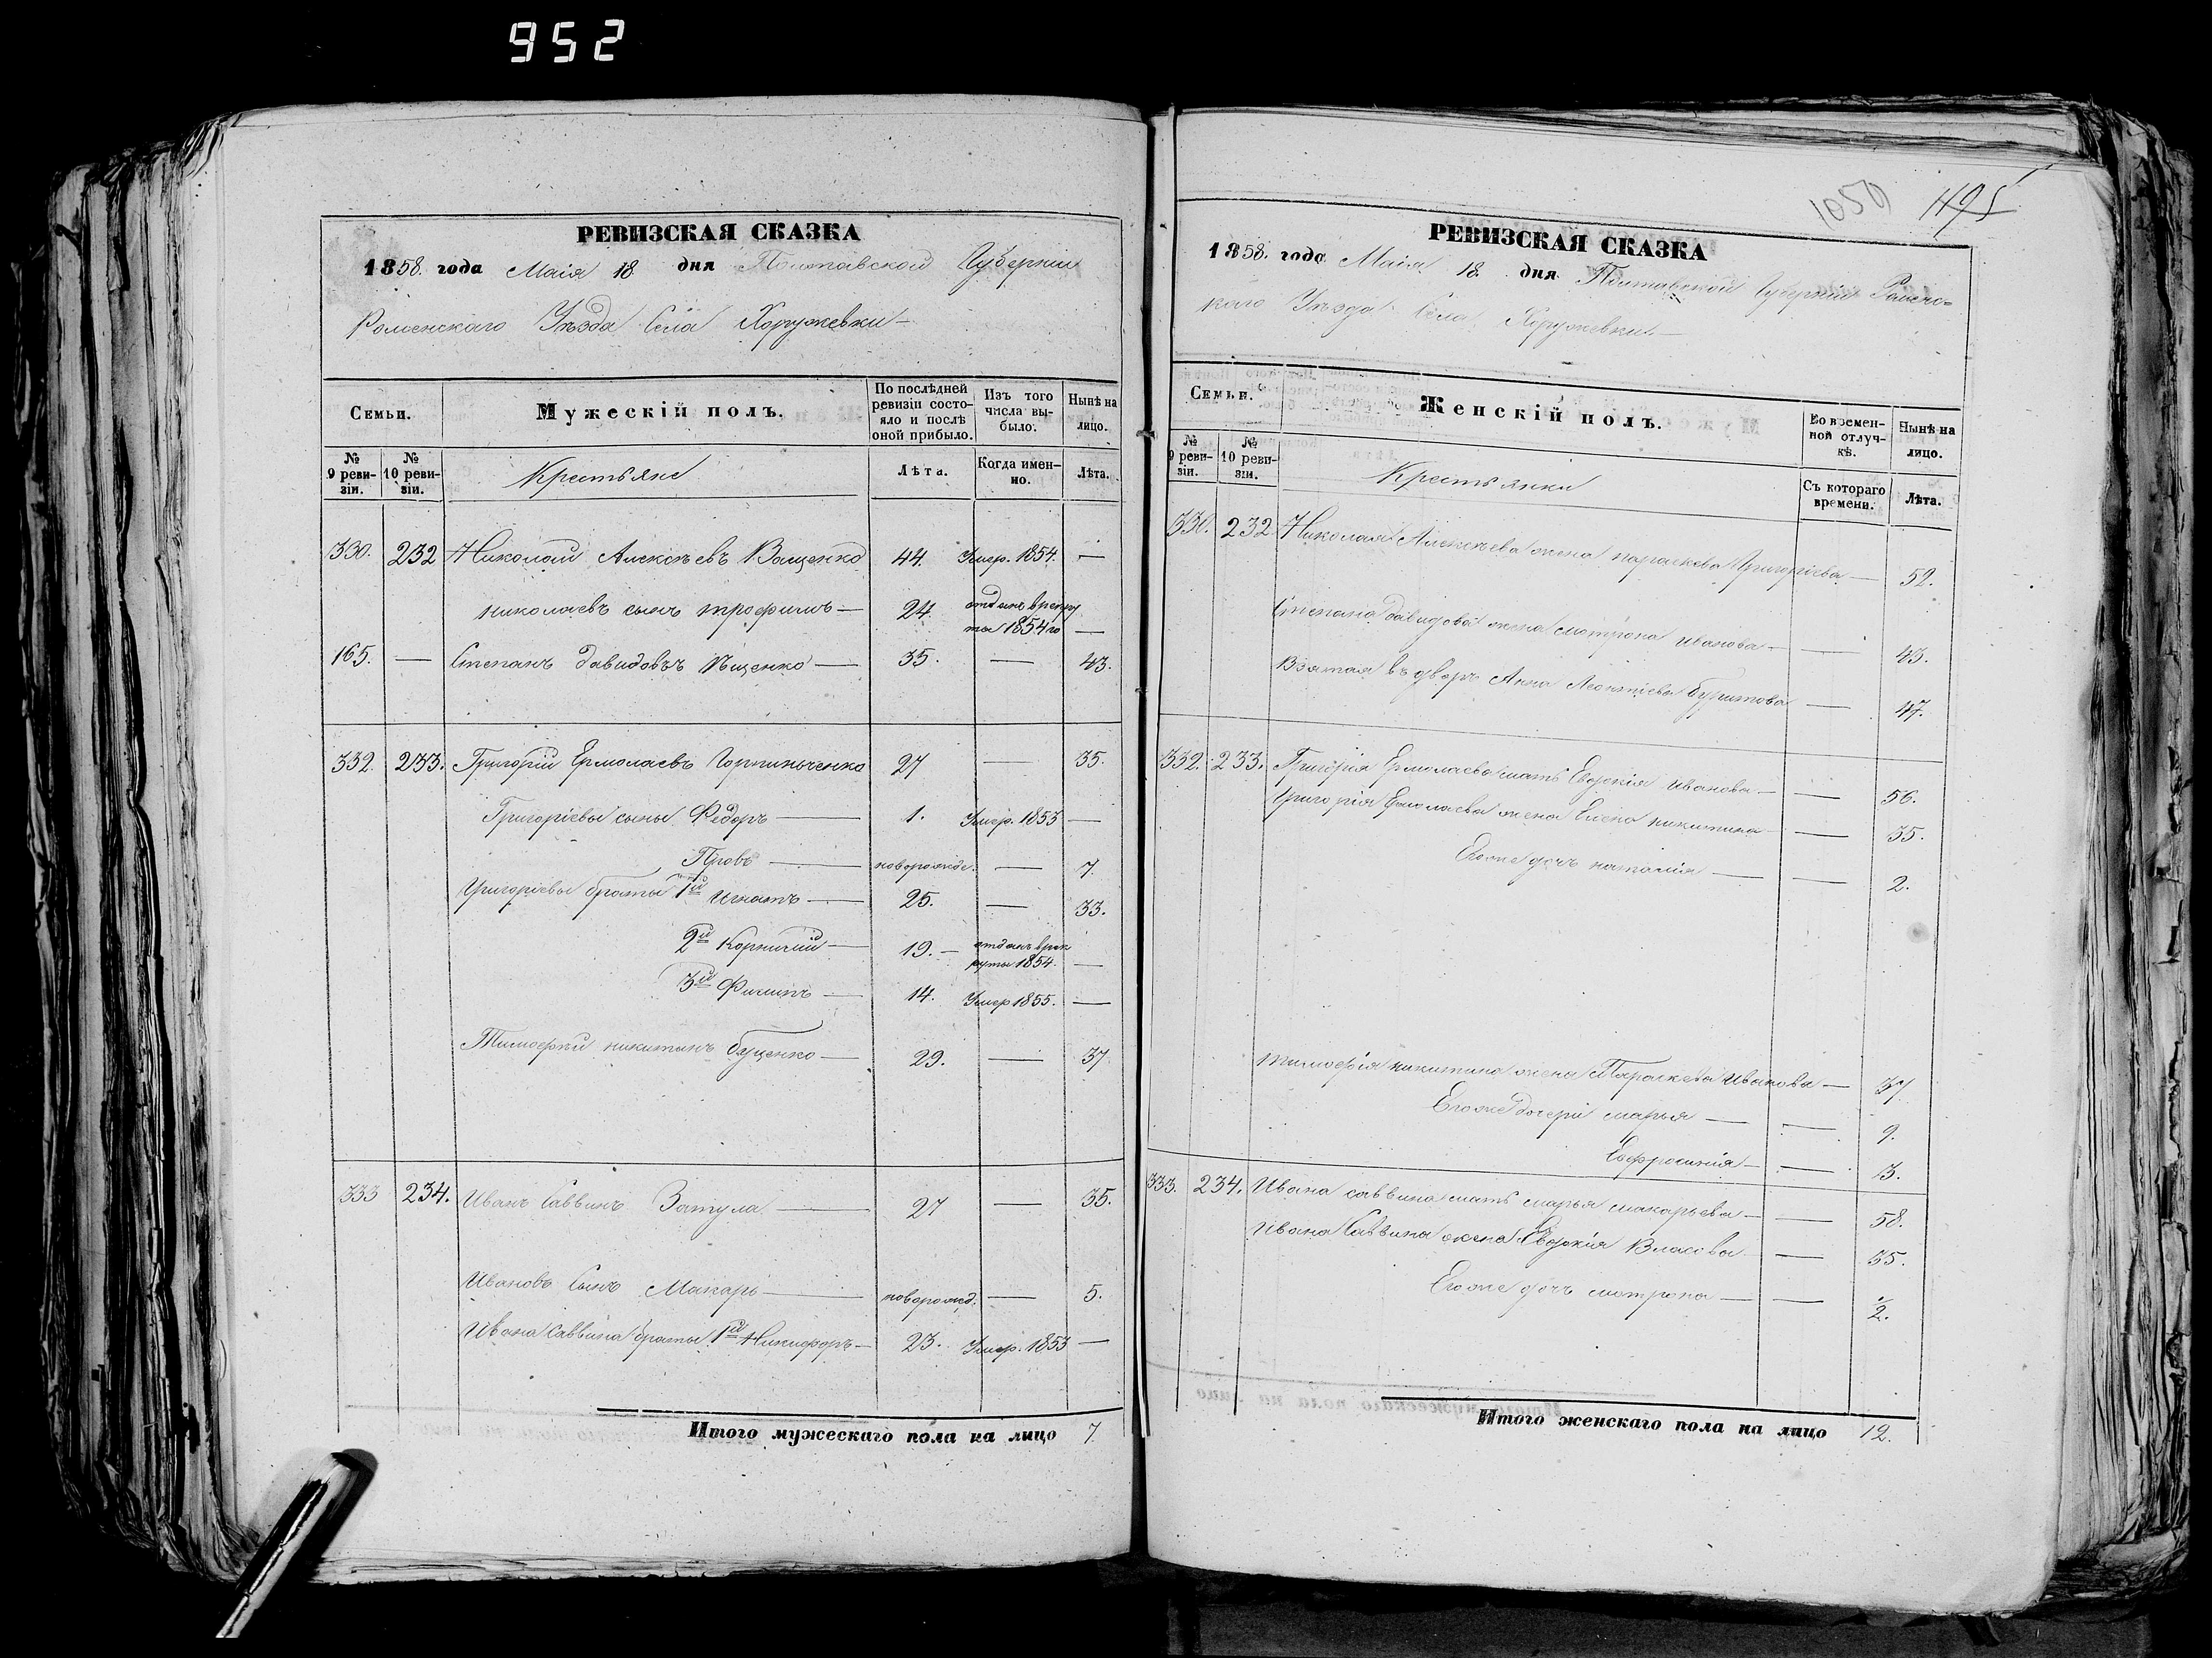 952
РЕВИЗСКАЯ СКАЗКА
1858. года Маія 18 дня Полтавской Губерніи
Роменскаго Уѣзда Села Хоружевки —
Семьи. Мужескій полъ. По послѣдней ревизіи состояло и послѣ оной прибыло. Изъ того числа выбыло. Нынѣ на лицо.
№ 9 ревизіи. № 10 ревизіи. Крестьяне Лѣта. Когда именно. Лѣта.
330. 232 Николай Алексѣевъ Ващенко 44. Умер. 1854. —
николаевъ сынъ трофимъ — 24. отданъ врекру
ты 1854 го —
165. — Степанъ Давидовъ — 35. — 43.
332. 233. Григорій Ермолаевъ 27 — 35.
Григоріевы сыны Федоръ — 1. Умер. 1853 —
Провъ — новорожде. — 7.
Григоріевы браты 1й Игнатъ — 25. — 33.
2й Корнилій — 19. — отданъ врек
руты 1854. —
3й Филипъ — 14. Умер 1855. —
Тимофей никитинъ Буценко — 29. — 37
333 234. Иванъ Саввинъ Затула — 27 — 35.
Ивановъ Сынъ Макаръ — новорожд. — 5.
Ивана Саввина браты 1й Никифоръ — 23. Умер. 1853 —
Итого мужескаго пола на лицо 7
1050 495
РЕВИЗСКАЯ СКАЗКА
1858. года Маія 18. дня Полтавской Губерніи Роменс=
каго Уѣзда Села Хоружевки. —
Семьи. Женскій полъ. Во временной отлучкѣ. Нынѣ на лицо.
№ 9 ревизіи. № 10 ревизіи. Крестьянки Съ котораго времени. Лѣта.
330. 232 Николая Алексѣева жена параскева Григоріева — 52.
Степана Давидова жена мотрона иванова — — 43.
Взятая въ дворъ Анна Леонтіева — 47.
332. 233. Григорія Ермолаева мать Евдокія Иванова — — 56.
Григорія Ермолаева жена Елена никитина — 35.
Егоже дочь наталія — — 2.
тимофія никитина жена Параскева Иванова — 37
Егоже дочери марья — — 9.
Евфросинія — — 3.
333. 234. Ивана саввина мать марья макарьева — — 58.
Ивана Саввина жена Евдокія Власова — 35.
Егоже дочь мотрона — — ½.
Итого женскаго пола на лицо 12.